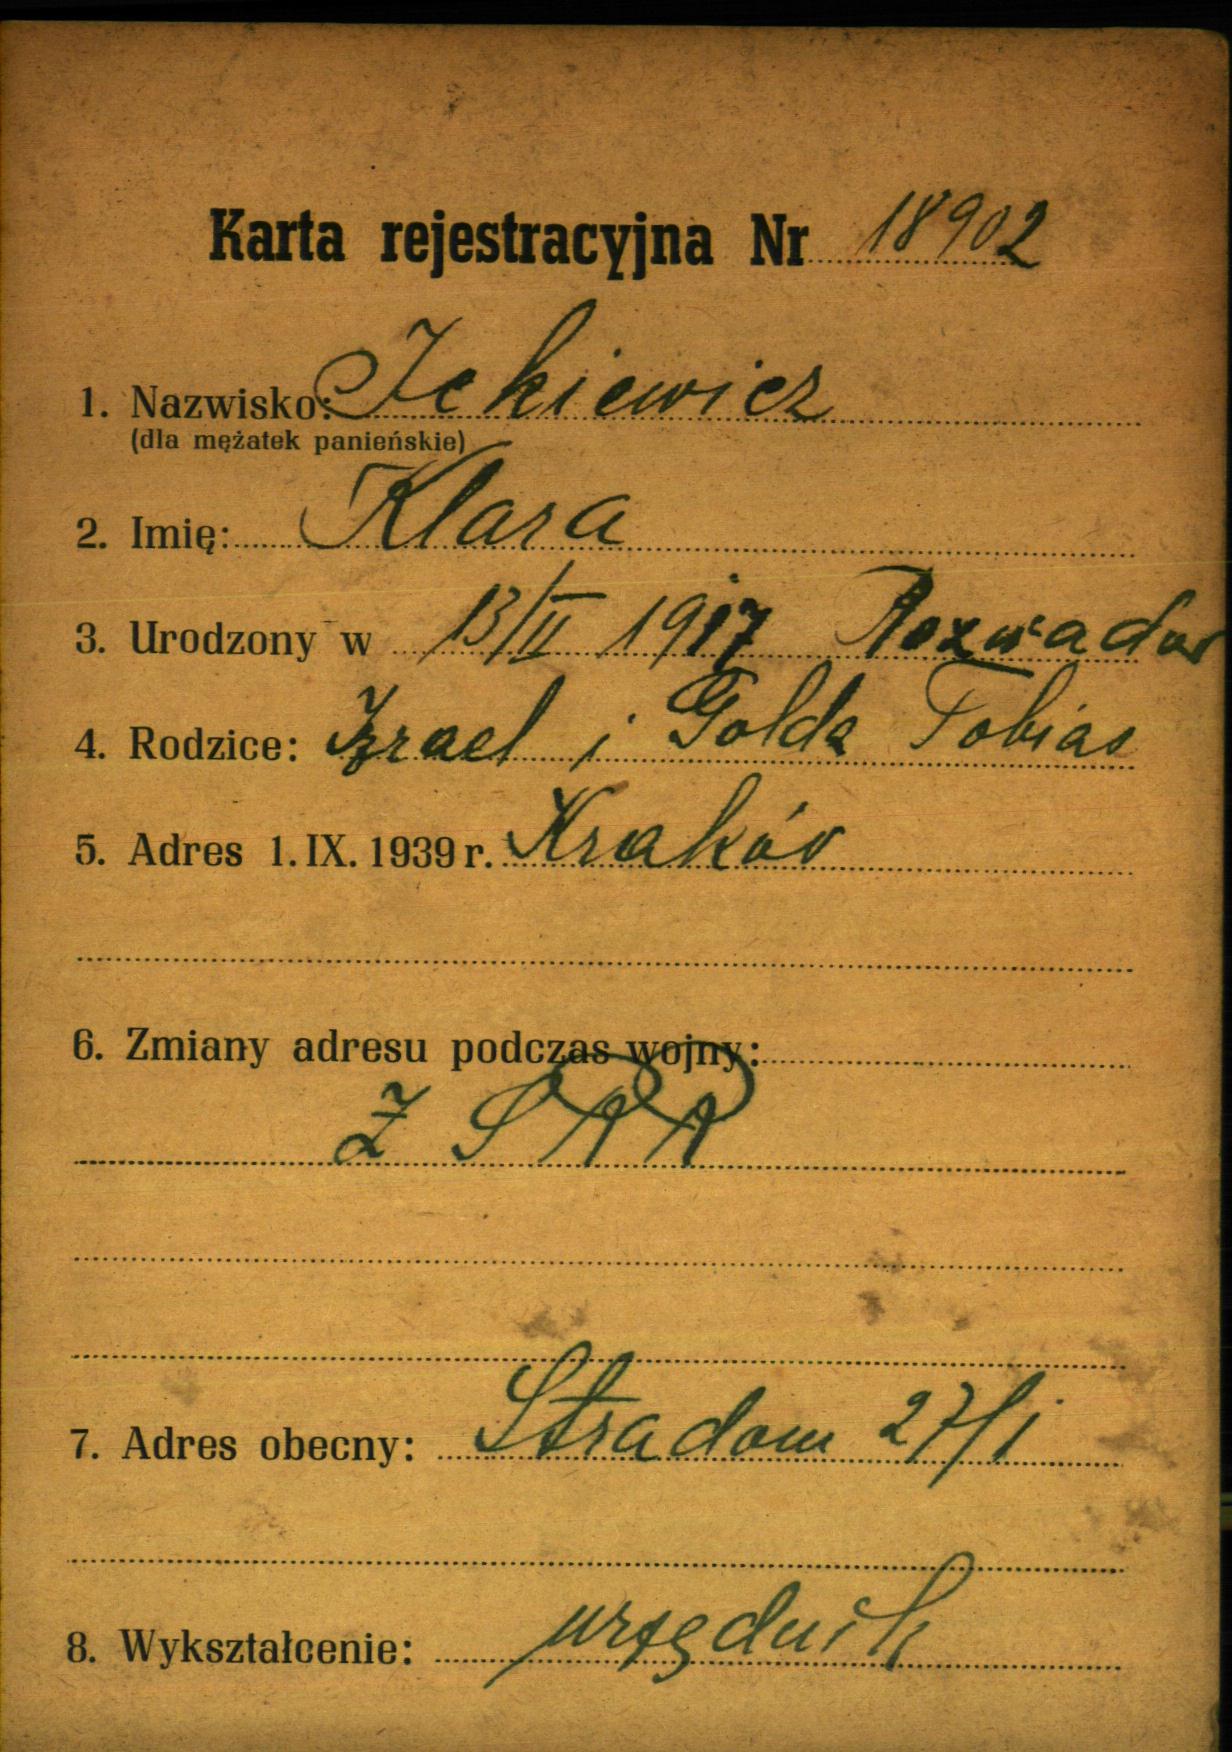 Karta rejestracyjna Nr 18902
1. Nazwisko: Ickiewicz
(dla mężatek panieńskie)
2. Imię: Klara
3. Urodzony w 13/II 1917 Rozwadów
4. Rodzice: Izrael i Golda Tobias
5. Adres 1. IX. 1939 r. Kraków
6. Zmiany adresu podczas wojny:
Z S R R
7. Adres obecny: Stradom 27/1
8. Wykształcenie: urzędnik